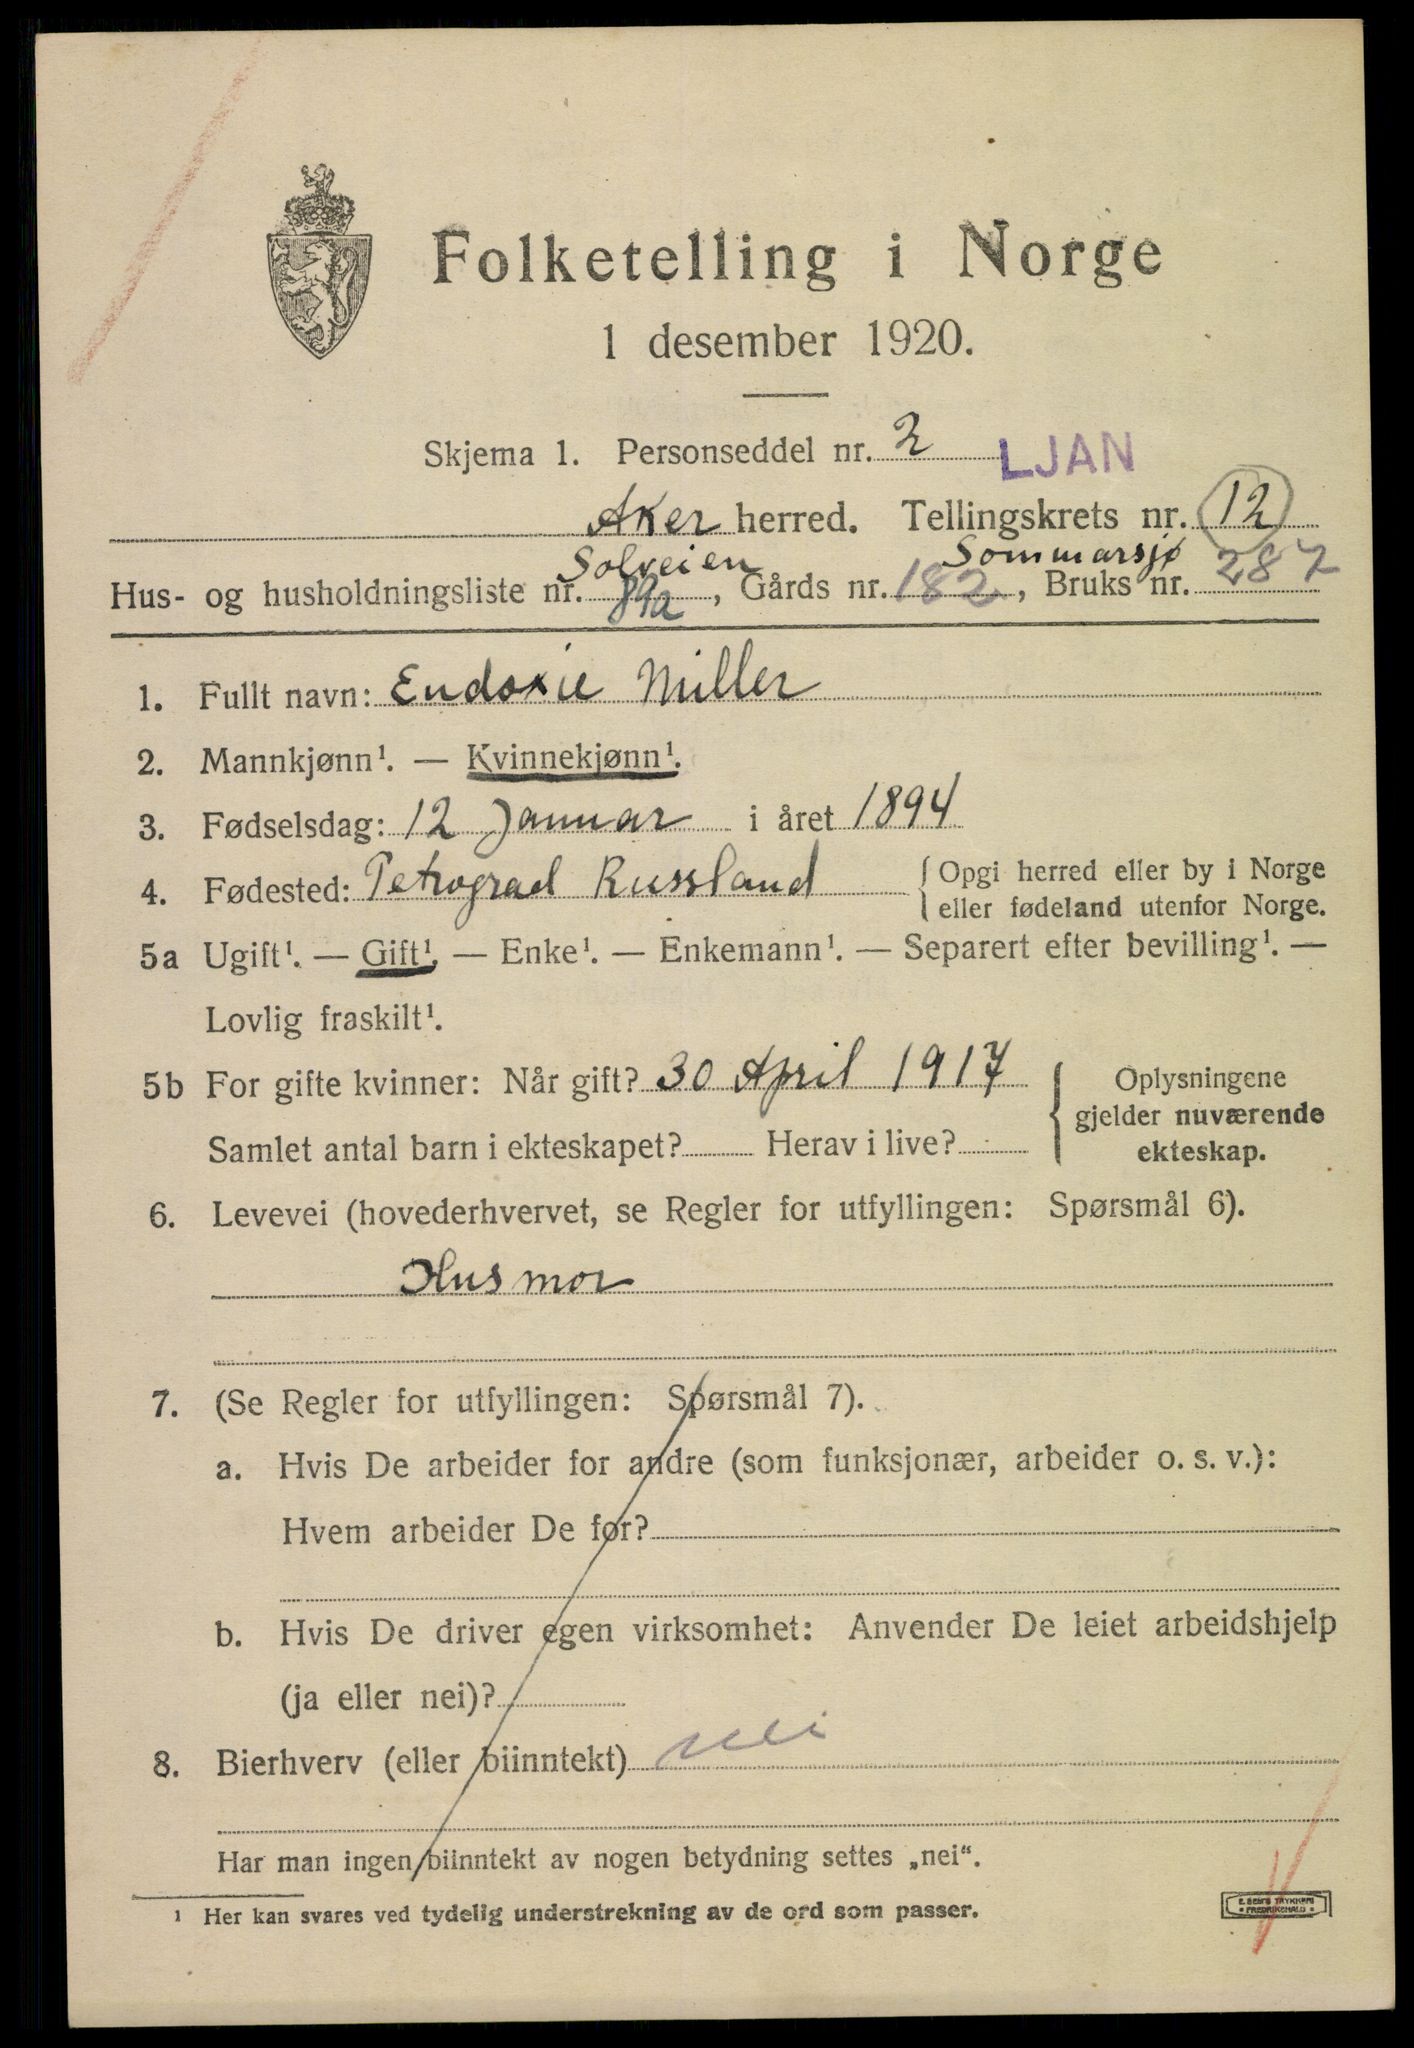 Folketelling i Norge
1 desember 1920.
Skjema 1. Personseddel nr. 2 LJAN
Aker herred. Tellingskrets nr. 12
Solveien Sommarsjø
Hus- og husholdningsliste nr. 89a, Gårds nr. 182, Bruks nr. 287
1. Fullt navn: Eudoxie Miller
2. Mannkjønn¹. — Kvinnekjønn¹.
3. Fødselsdag: 12 Januar i året 1894
4. Fødested: Petrograd Russland { Opgi herred eller by i Norge
eller fødeland utenfor Norge.
5a Ugift¹. — Gift¹. — Enke¹. — Enkemann¹. — Separert efter bevilling¹. —
Lovlig fraskilt¹.
5b For gifte kvinner: Når gift? 30 April 1917 { Oplysningene
gjelder nuværende
Samlet antal barn i ekteskapet? Herav i live? ekteskap.
6. Levevei (hovederhvervet, se Regler for utfyllingen: Spørsmål 6).
Husmor
7. (Se Regler for utfyllingen: Spørsmål 7).
a. Hvis De arbeider for andre (som funksjonær, arbeider o. s. v.):
Hvem arbeider De for?
b. Hvis De driver egen virksomhet: Anvender De leiet arbeidshjelp
(ja eller nei)?
8. Bierhverv (eller biinntekt) nei
Har man ingen biinntekt av nogen betydning settes „nei“.
¹ Her kan svares ved tydelig understrekning av de ord som passer.
E. SEMS TRYKKERI
* FREDRIKSHALD *